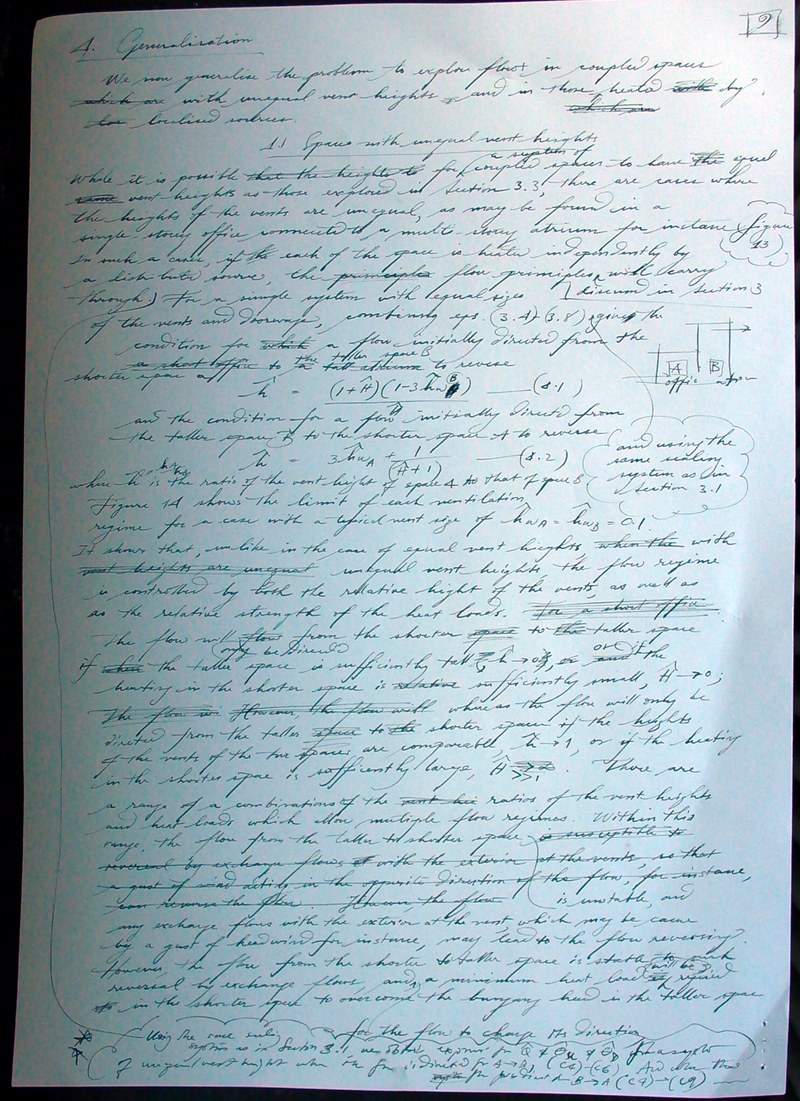 9
4. Generalisation
We now generalise the problem to explore flows in coupled spaces
which are with unequal vent heights, and in those heated with by
which are
localised sources.
1.1 Spaces with unequal vent heights
a system of
While it is possible that the heights to for coupled spaces to have the equal
same vent heights as those explored in Section 3.3, there are cases where
the heights of the vents are unequal, as may be found in a
single storey office connected to a multi-storey atrium for instance (figure
13
In such a case, if the each of the space is heated independently by
a distributed source, the principles flow principles will carry
through. For a simple system with equal sizes
discussed in section 3
of the vents and doorways, combining eqs. (3.4)-(3.8) gives the
condition for which a flow initially directed from the
the taller space B
as short office to a tall atrium to reverse
shorter space
ĥ = (1+Ĥ)(1-3ĥ (4.1)
A B
office
and the condition for a flow initially directed from
the taller space B to the shorter space A to reverse
ĥ = 3ĥwA + 1/(Ĥ+1) (4.2)
and using the
same scaling
system as in
section 3.1
where ĥ is the ratio of the vent height of space A to that of space B
Figure 14 shows the limit of each ventilation
regime for a case with a typical vent size of ĥwA = ĥwB = 0.1.
It shows that, unlike in the case of equal vent heights, when the with
vent heights are unequal unequal vent heights, the flow regime
is controlled by both the relative height of the vents, as well as
as the relative strength of the heat loads. For a short office
The flow will flow from the shorter space to the taller space
only be directed
if when the taller space is sufficiently tall, ĥ→0, or the
or if
heating in the shorter space is relative sufficiently small, Ĥ→0;
The flow However, the flow will whereas the flow will only be
directed from the taller space to the shorter space if the heights
of the vents of the two spaces are comparable, ĥ→1, or if the heating
in the shorter space is sufficiently large, Ĥ >>1. There are
a range of a combinations of the ratios of the vent heights
and heat loads which allow multiple flow regimes. Within this
range, the flow from the taller to shorter space is susceptible to
reversal by exchange flows with the exterior at the vents, so that
a gust of wind acting in the opposite direction of the flow, for instance,
can reverse the flow. However, the flow is unstable, and
any exchange flows with the exterior at the vent, which may be cause
by a gust of headwind for instance, may lead to the flow reversing.
However the flow from the shorter to taller space is stable to such
reversal by exchange flows, and a minimum heat load is required
will be
in the shorter space to overcome the buoyancy head in the taller space
for the flow to change its direction
Using the same scaling
system as in Section 3.1 we obtain for a system
of unequal vent height when the flow is directed A→B, (C4)-(C6). And when the
B→A (C7)-(C9)